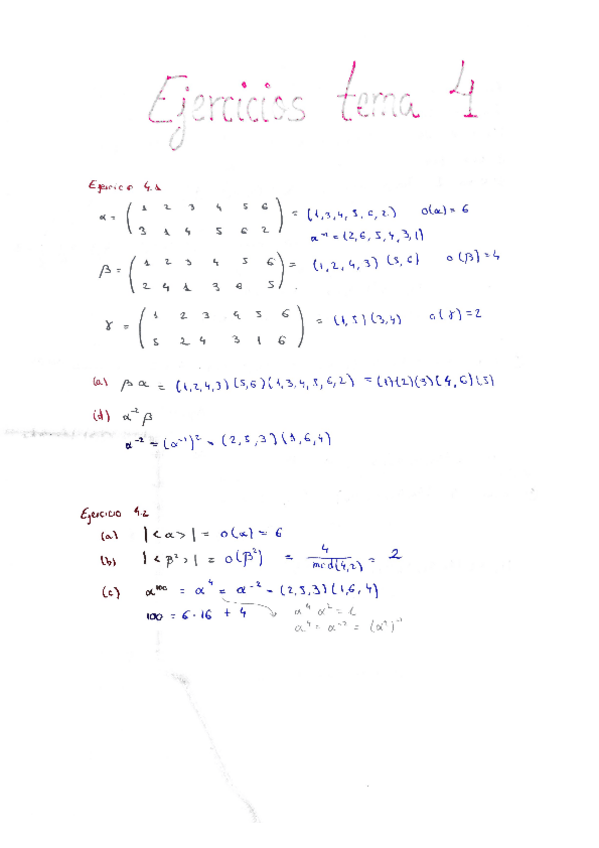 Ejerciciss tema 4
Ejercicio 4.1
α = ( 1 2 3 4 5 6 ) = (1,3,4,5,6,2) o(α) = 6
3 1 4 5 6 2 α⁻¹ = (2,6,5,4,3,1)
β = ( 1 2 3 4 5 6 ) = (1,2,4,3) (5,6) o(β) = 4
2 4 1 3 6 5
γ = ( 1 2 3 4 5 6 ) = (1,5) (3,4) o(γ) = 2
5 2 4 3 1 6
(a) βα = (1,2,4,3) (5,6) (1,3,4,5,6,2) = (1)(2)(3)(4,6)(5)
(d) α⁻²β
α⁻² = (α⁻¹)² = (2,5,3) (1,6,4)
Ejercicio 4.2
(a) |<α>| = o(α) = 6
(b) |<β²>| = o(β²) = 4 / mcd(4,2) = 2
(c) α¹⁰⁰ = α⁴ = α⁻² = (2,5,3) (1,6,4)
100 = 6·16 + 4 α⁴ α² = ι
α⁴ = α⁻² = (α²)⁻¹